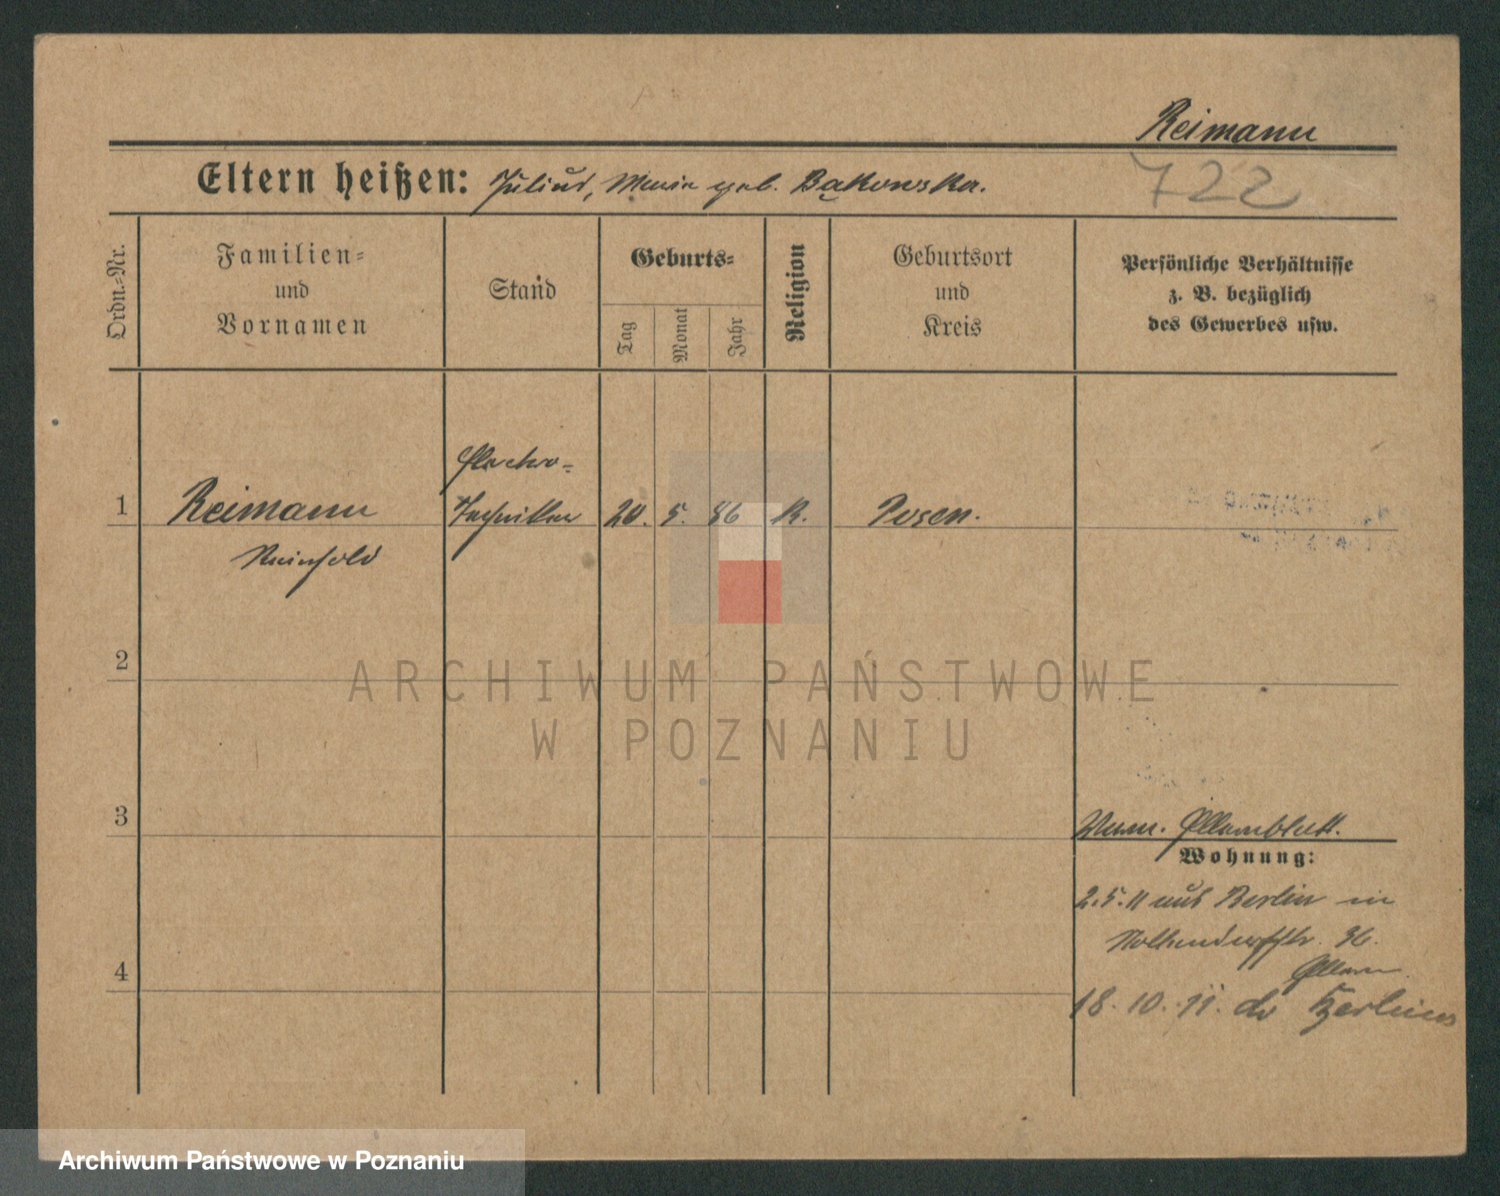 Reimann
722
Eltern heißen: Julius, Maria geb. Bąkowska.
Ordn.-Nr.
Familien-
und
Vornamen
Stand
Geburts-
Tag
Monat
Jahr
Religion
Geburtsort
und
Kreis
Persönliche Verhältnisse
z. B. bezüglich
des Gewerbes usw.
Electro-
1 Reimann Techniker 20. 5. 86 K. Posen.
Reinhold
2
ARCHIWUM PAŃSTWOWE
W POZNANIU
3
Elternblatt.
Wohnung:
2.5.11 aus Berlin in
Nollendorfstr. 36.
4
Eltern
18. 10. 11. Berlin
Archiwum Państwowe w Poznaniu